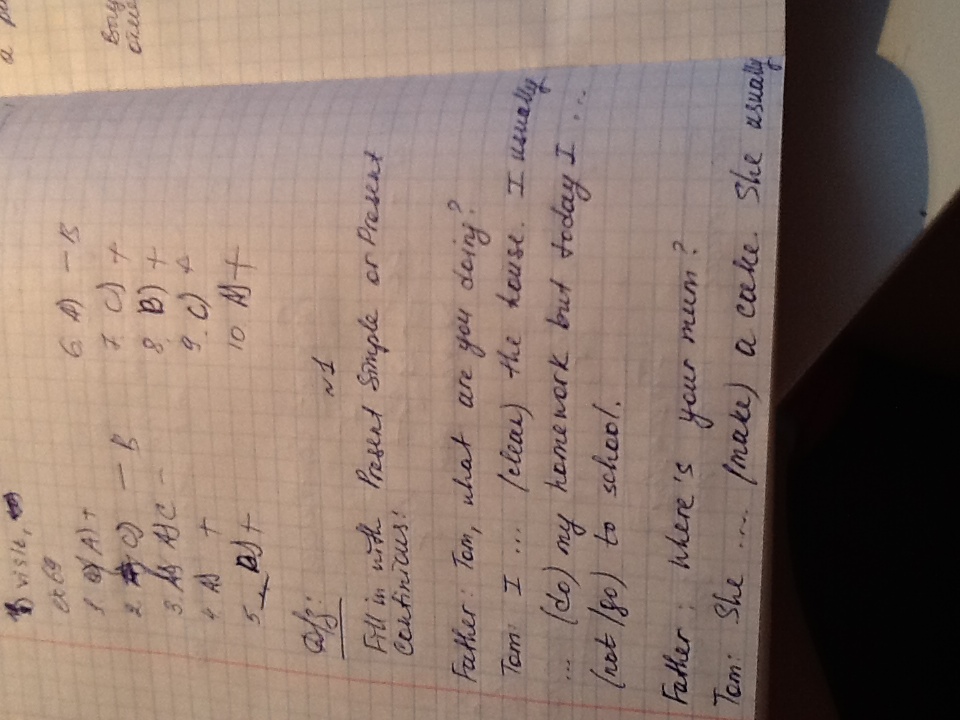 visit,
ex 69
1. A) +
2. C) — B
3. A) C –
4. A) +
5. B) +
6. A) — B
7. C) +
8. B) +
9. C) +
10. A) +
д/з:
№1
Fill in with Present Simple or Present
Continuous:
Father: Tom, what are you doing?
Tom: I ... (clean) the house. I usually
... (do) my homework but today I ...
(not/go) to school.
Father: Where's your mum?
Tom: She .... (make) a cake. She usually